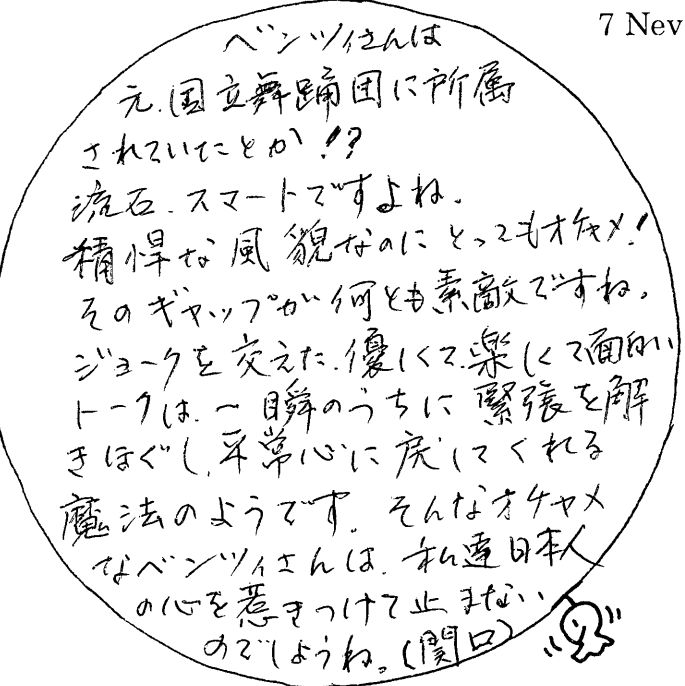 7 Nev
ベンツィさんは
元.国立舞踊団に所属
されていたとか!?
流石.スマートですよね。
精悍な風貌なのにとってもオチャメ!
そのギャップが何とも素敵ですね。
ジョークを交えた.優しくて.楽しくて面白い
トークは.一瞬のうちに緊張を解
きほぐし,平常心に戻してくれる
魔法のようです。そんなオチャメ
なベンツィさんは.私達日本人
の心を惹きつけて止まない
のでしょうね。(関口)